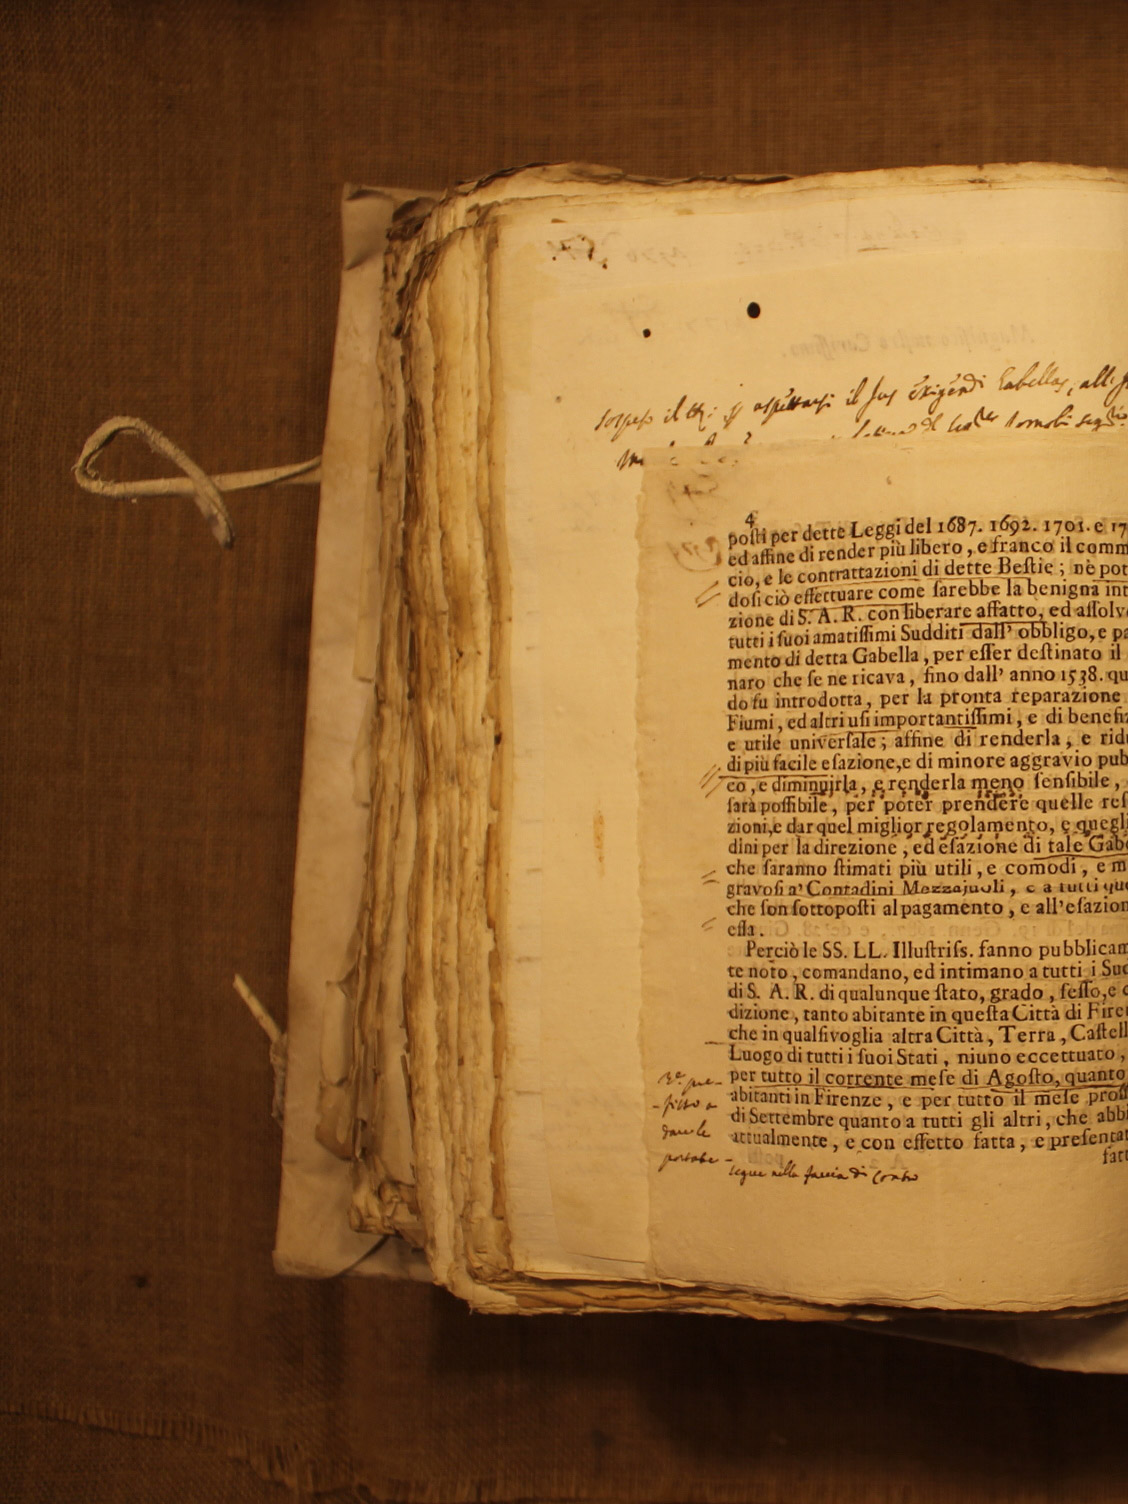 sospeso il
aspettarsi il Jus exigendi Gabellas, alli
4
posti per dette Leggi del 1687. 1692. 1701. e 17
ed affine di render più libero, e franco il comm
cio, e le contrattazioni di dette Bestie; nè pot
dosi ciò effettuare come sarebbe la benigna int
zione di S. A. R. con liberare affatto, ed assolv
tutti i suoi amatissimi Sudditi dall' obbligo, e pa
mento di detta Gabella, per esser destinato il
naro che se ne ricava, fino dall' anno 1538. qu
do fu introdotta, per la pronta reparazione
Fiumi, ed altri usi importantissimi, e di benefiz
e utile universale; affine di renderla, e ridu
di più facile esazione, e di minore aggravio pub
co, e diminuirla, e renderla meno sensibile,
sarà possibile, per poter prendere quelle res
zioni, e dar quel miglior regolamento, e quegli
dini per la direzione, ed esazione di tale Gabe
che saranno stimati più utili, e comodi, e m
gravosi a' Contadini Mezzajuoli, e a tutti que
che son sottoposti al pagamento, e all'esazion
essa.
Perciò le SS. LL. Illustriss. fanno pubblicam
te noto, comandano, ed intimano a tutti i Sud
di S. A. R. di qualunque stato, grado, sesso, e c
dizione, tanto abitante in questa Città di Fire
che in qualsivoglia altra Città, Terra, Castell
Luogo di tutti i suoi Stati, niuno eccettuato,
per tutto il corrente mese di Agosto, quanto
abitanti in Firenze, e per tutto il mese pross
di Settembre quanto a tutti gli altri, che abb
attualmente, e con effetto fatta, e presentat
fatt
pre-
-fisso a
dare le
portate-
segue nella faccia di contro